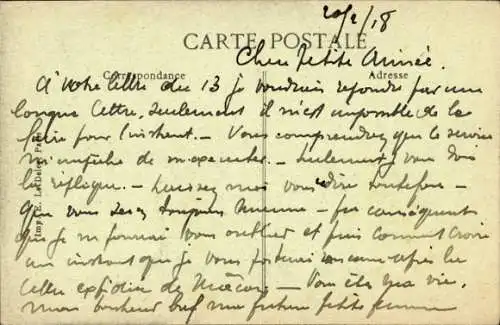 20/2/18
CARTE POSTALE
Chère Petite Aimée.
Correspondance
Adresse
A votre lettre du 13 je voudrais répondre par une
longue lettre, seulement il m'est impossible de le
faire pour l'instant. — Vous comprendrez que le service
m'empêche de m'exécuter. — Seulement, vous dois
la réplique. — Laissez moi vous dire toutefois —
Que vous serez toujours Mienne — par conséquent
que je ne pourrai vous oublier et puis comment croire
un instant que je vous
lettre expédiée de Mâcon. — Vous êtes ma vie,
mon bonheur bref ma future petite femme
Imp. E. Le Deley, Paris